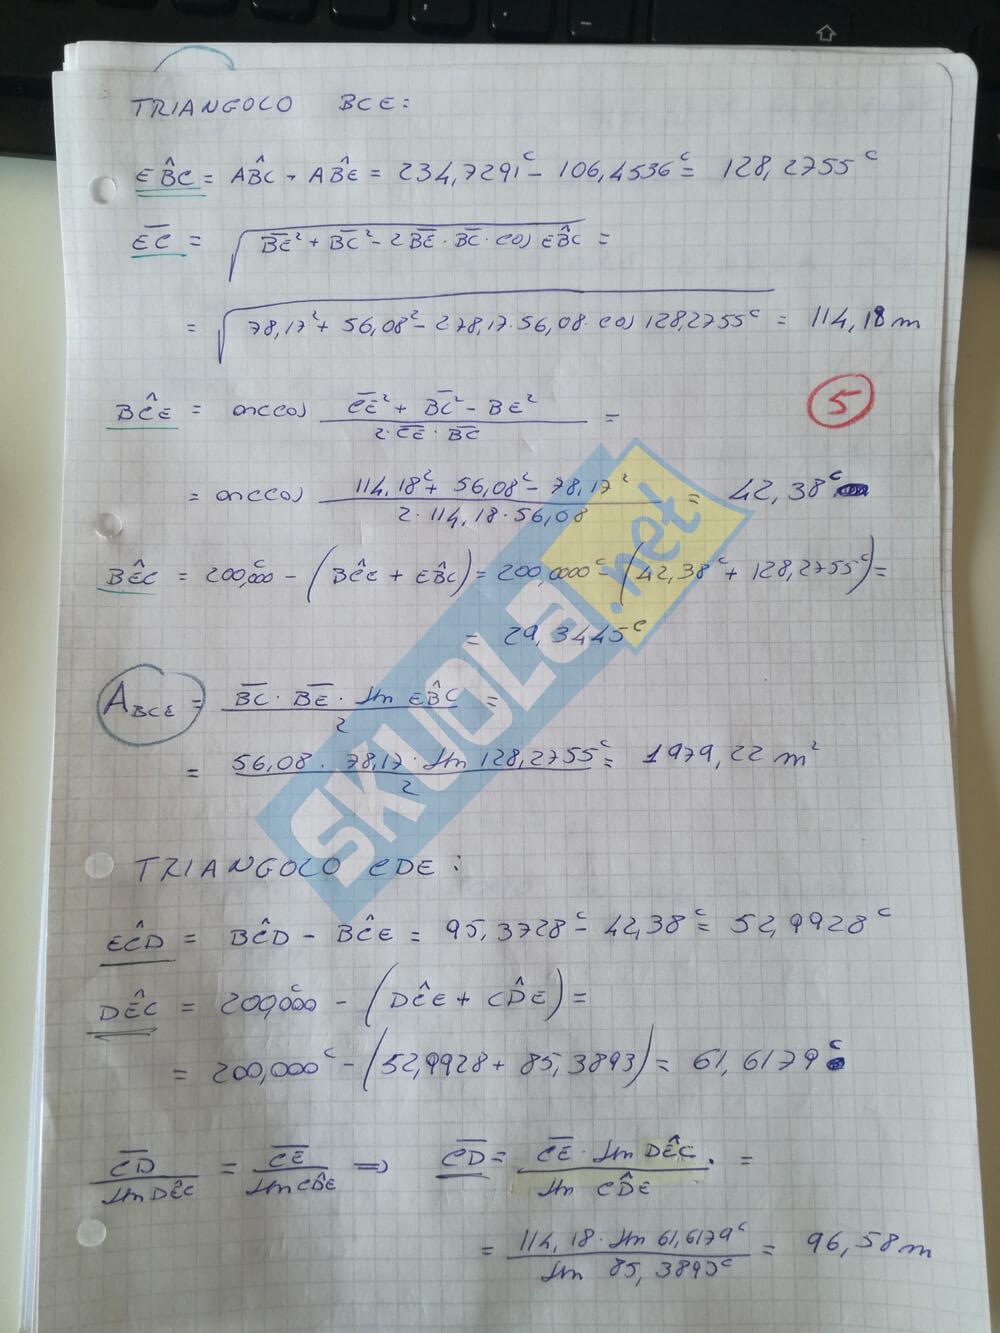 TRIANGOLO BCE:
EB̂C = AB̂C - AB̂E = 234,7291ᶜ - 106,4536ᶜ = 128,2755ᶜ
E̅C̅ = √(B̅E̅² + B̅C̅² - 2B̅E̅ · B̅C̅ · cos EB̂C) =
= √(78,17² + 56,08² - 278,17 · 56,08 · cos 128,2755ᶜ) = 114,18 m
BĈE = arccos (C̅E̅² + B̅C̅² - BE²) / (2 · C̅E̅ · B̅C̅) =
5
= arccos (114,18² + 56,08² - 78,17²) / (2 · 114,18 · 56,08) = 42,38ᶜ
BÊC = 200,000ᶜ - (BĈE + EB̂C) = 200,0000ᶜ - (42,38ᶜ + 128,2755ᶜ) =
= 29,3445ᶜ
A_BCE = (B̅C̅ · B̅E̅ · sin EB̂C) / 2 =
= (56,08 · 78,17 · sin 128,2755ᶜ) / 2 = 1979,22 m²
TRIANGOLO CDE:
EĈD = BĈD - BĈE = 95,3728ᶜ - 42,38ᶜ = 52,9928ᶜ
DÊC = 200,000ᶜ - (DĈE + CD̂E) =
= 200,000ᶜ - (52,9928 + 85,3893) = 61,6179ᶜ
C̅D̅ / sin DÊC = C̅E̅ / sin CD̂E ⇒ C̅D̅ = (C̅E̅ · sin DÊC) / (sin CD̂E) =
= (114,18 · sin 61,6179ᶜ) / (sin 85,3893ᶜ) = 96,58 m
SKUOLA.net